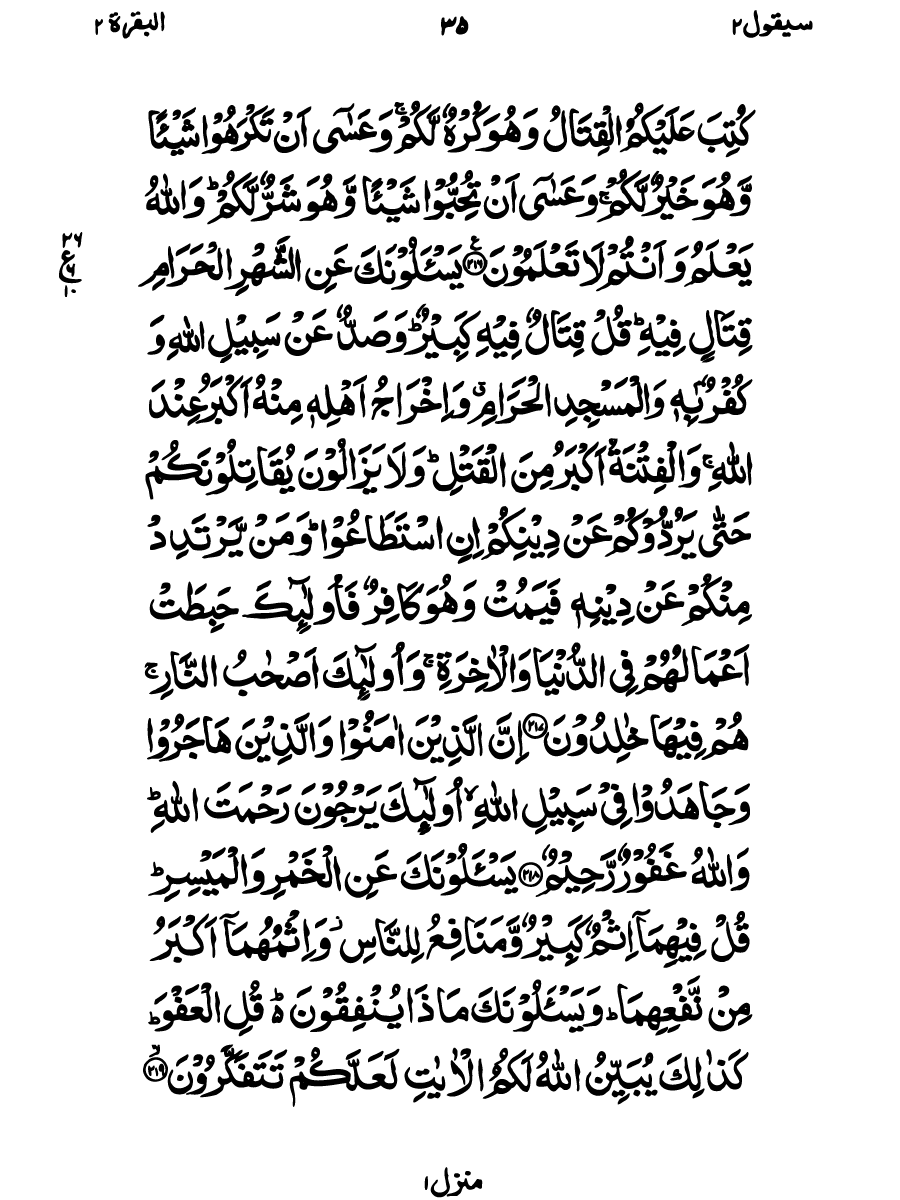 سيقول٢ ٣٥ البقرة ٢
كُتِبَ عَلَيْكُمُ الْقِتَالُ وَهُوَ كُرْهٌ لَّكُمْ ۚ وَعَسٰٓى اَنْ تَكْرَهُوْا شَيْـًٔا
وَّهُوَ خَيْرٌ لَّكُمْ ۚ وَعَسٰٓى اَنْ تُحِبُّوْا شَيْـًٔا وَّهُوَ شَرٌّ لَّكُمْ ؕ وَاللّٰهُ
يَعْلَمُ وَاَنْتُمْ لَا تَعْلَمُوْنَ ﴿٢١٦﴾ يَسْـَٔلُوْنَكَ عَنِ الشَّهْرِ الْحَرَامِ
٢٦
ع
٦
١٠
قِتَالٍ فِيْهِ ؕ قُلْ قِتَالٌ فِيْهِ كَبِيْرٌ ؕ وَصَدٌّ عَنْ سَبِيْلِ اللّٰهِ وَ
كُفْرٌۢ بِهٖ وَالْمَسْجِدِ الْحَرَامِ ۗ وَاِخْرَاجُ اَهْلِهٖ مِنْهُ اَكْبَرُ عِنْدَ
اللّٰهِ ۚ وَالْفِتْنَةُ اَكْبَرُ مِنَ الْقَتْلِ ؕ وَلَا يَزَالُوْنَ يُقَاتِلُوْنَكُمْ
حَتّٰى يَرُدُّوْكُمْ عَنْ دِيْنِكُمْ اِنِ اسْتَطَاعُوْا ؕ وَمَنْ يَّرْتَدِدْ
مِنْكُمْ عَنْ دِيْنِهٖ فَيَمُتْ وَهُوَ كَافِرٌ فَاُولٰٓئِكَ حَبِطَتْ
اَعْمَالُهُمْ فِى الدُّنْيَا وَالْاٰخِرَةِ ۚ وَاُولٰٓئِكَ اَصْحٰبُ النَّارِ ۚ
هُمْ فِيْهَا خٰلِدُوْنَ ﴿٢١٧﴾ اِنَّ الَّذِيْنَ اٰمَنُوْا وَالَّذِيْنَ هَاجَرُوْا
وَجَاهَدُوْا فِىْ سَبِيْلِ اللّٰهِ ۙ اُولٰٓئِكَ يَرْجُوْنَ رَحْمَتَ اللّٰهِ ؕ
وَاللّٰهُ غَفُوْرٌ رَّحِيْمٌ ﴿٢١٨﴾ يَسْـَٔلُوْنَكَ عَنِ الْخَمْرِ وَالْمَيْسِرِ ؕ
قُلْ فِيْهِمَآ اِثْمٌ كَبِيْرٌ وَّمَنَافِعُ لِلنَّاسِ ۫ وَاِثْمُهُمَآ اَكْبَرُ
مِنْ نَّفْعِهِمَا ؕ وَيَسْـَٔلُوْنَكَ مَاذَا يُنْفِقُوْنَ ؕ۬ قُلِ الْعَفْوَ ؕ
كَذٰلِكَ يُبَيِّنُ اللّٰهُ لَكُمُ الْاٰيٰتِ لَعَلَّكُمْ تَتَفَكَّرُوْنَ ۙ﴿٢١٩﴾
منزل١